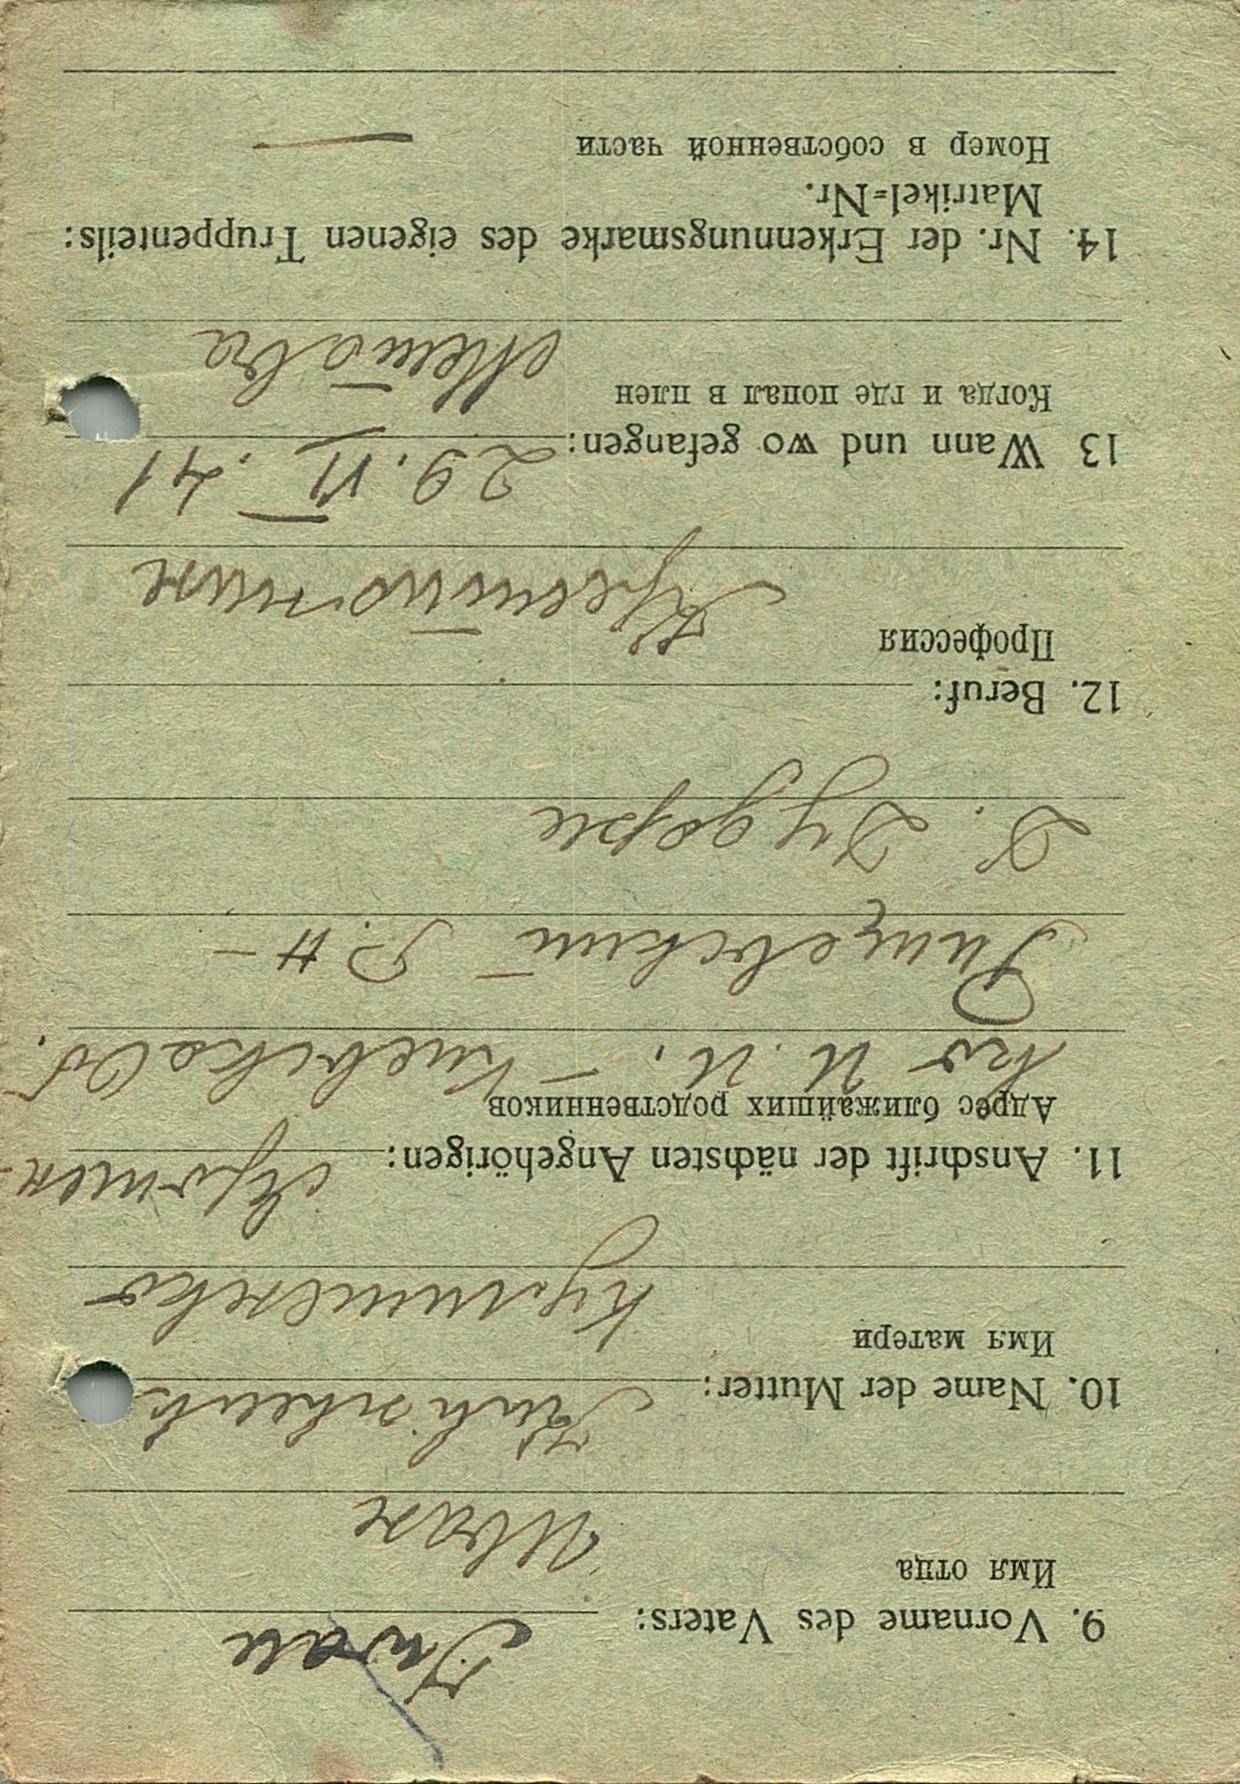 9. Vorname des Vaters: Iwan
Имя отца Иван
10. Name der Mutter:
Имя матери Кулишенко
11. Anschrift der nächsten Angehörigen: Артемен-
Адрес ближайших родственников
ко И. И. – Киевска Об.
Ржищевский Р.Н –
Дудари
12. Beruf:
Профессия
13 Wann und wo gefangen: 29. VI. 41
Когда и где попал в плен Метава
14. Nr. der Erkennungsmarke des eigenen Truppenteils:
Matrikel=Nr.
Номер в собственной части —